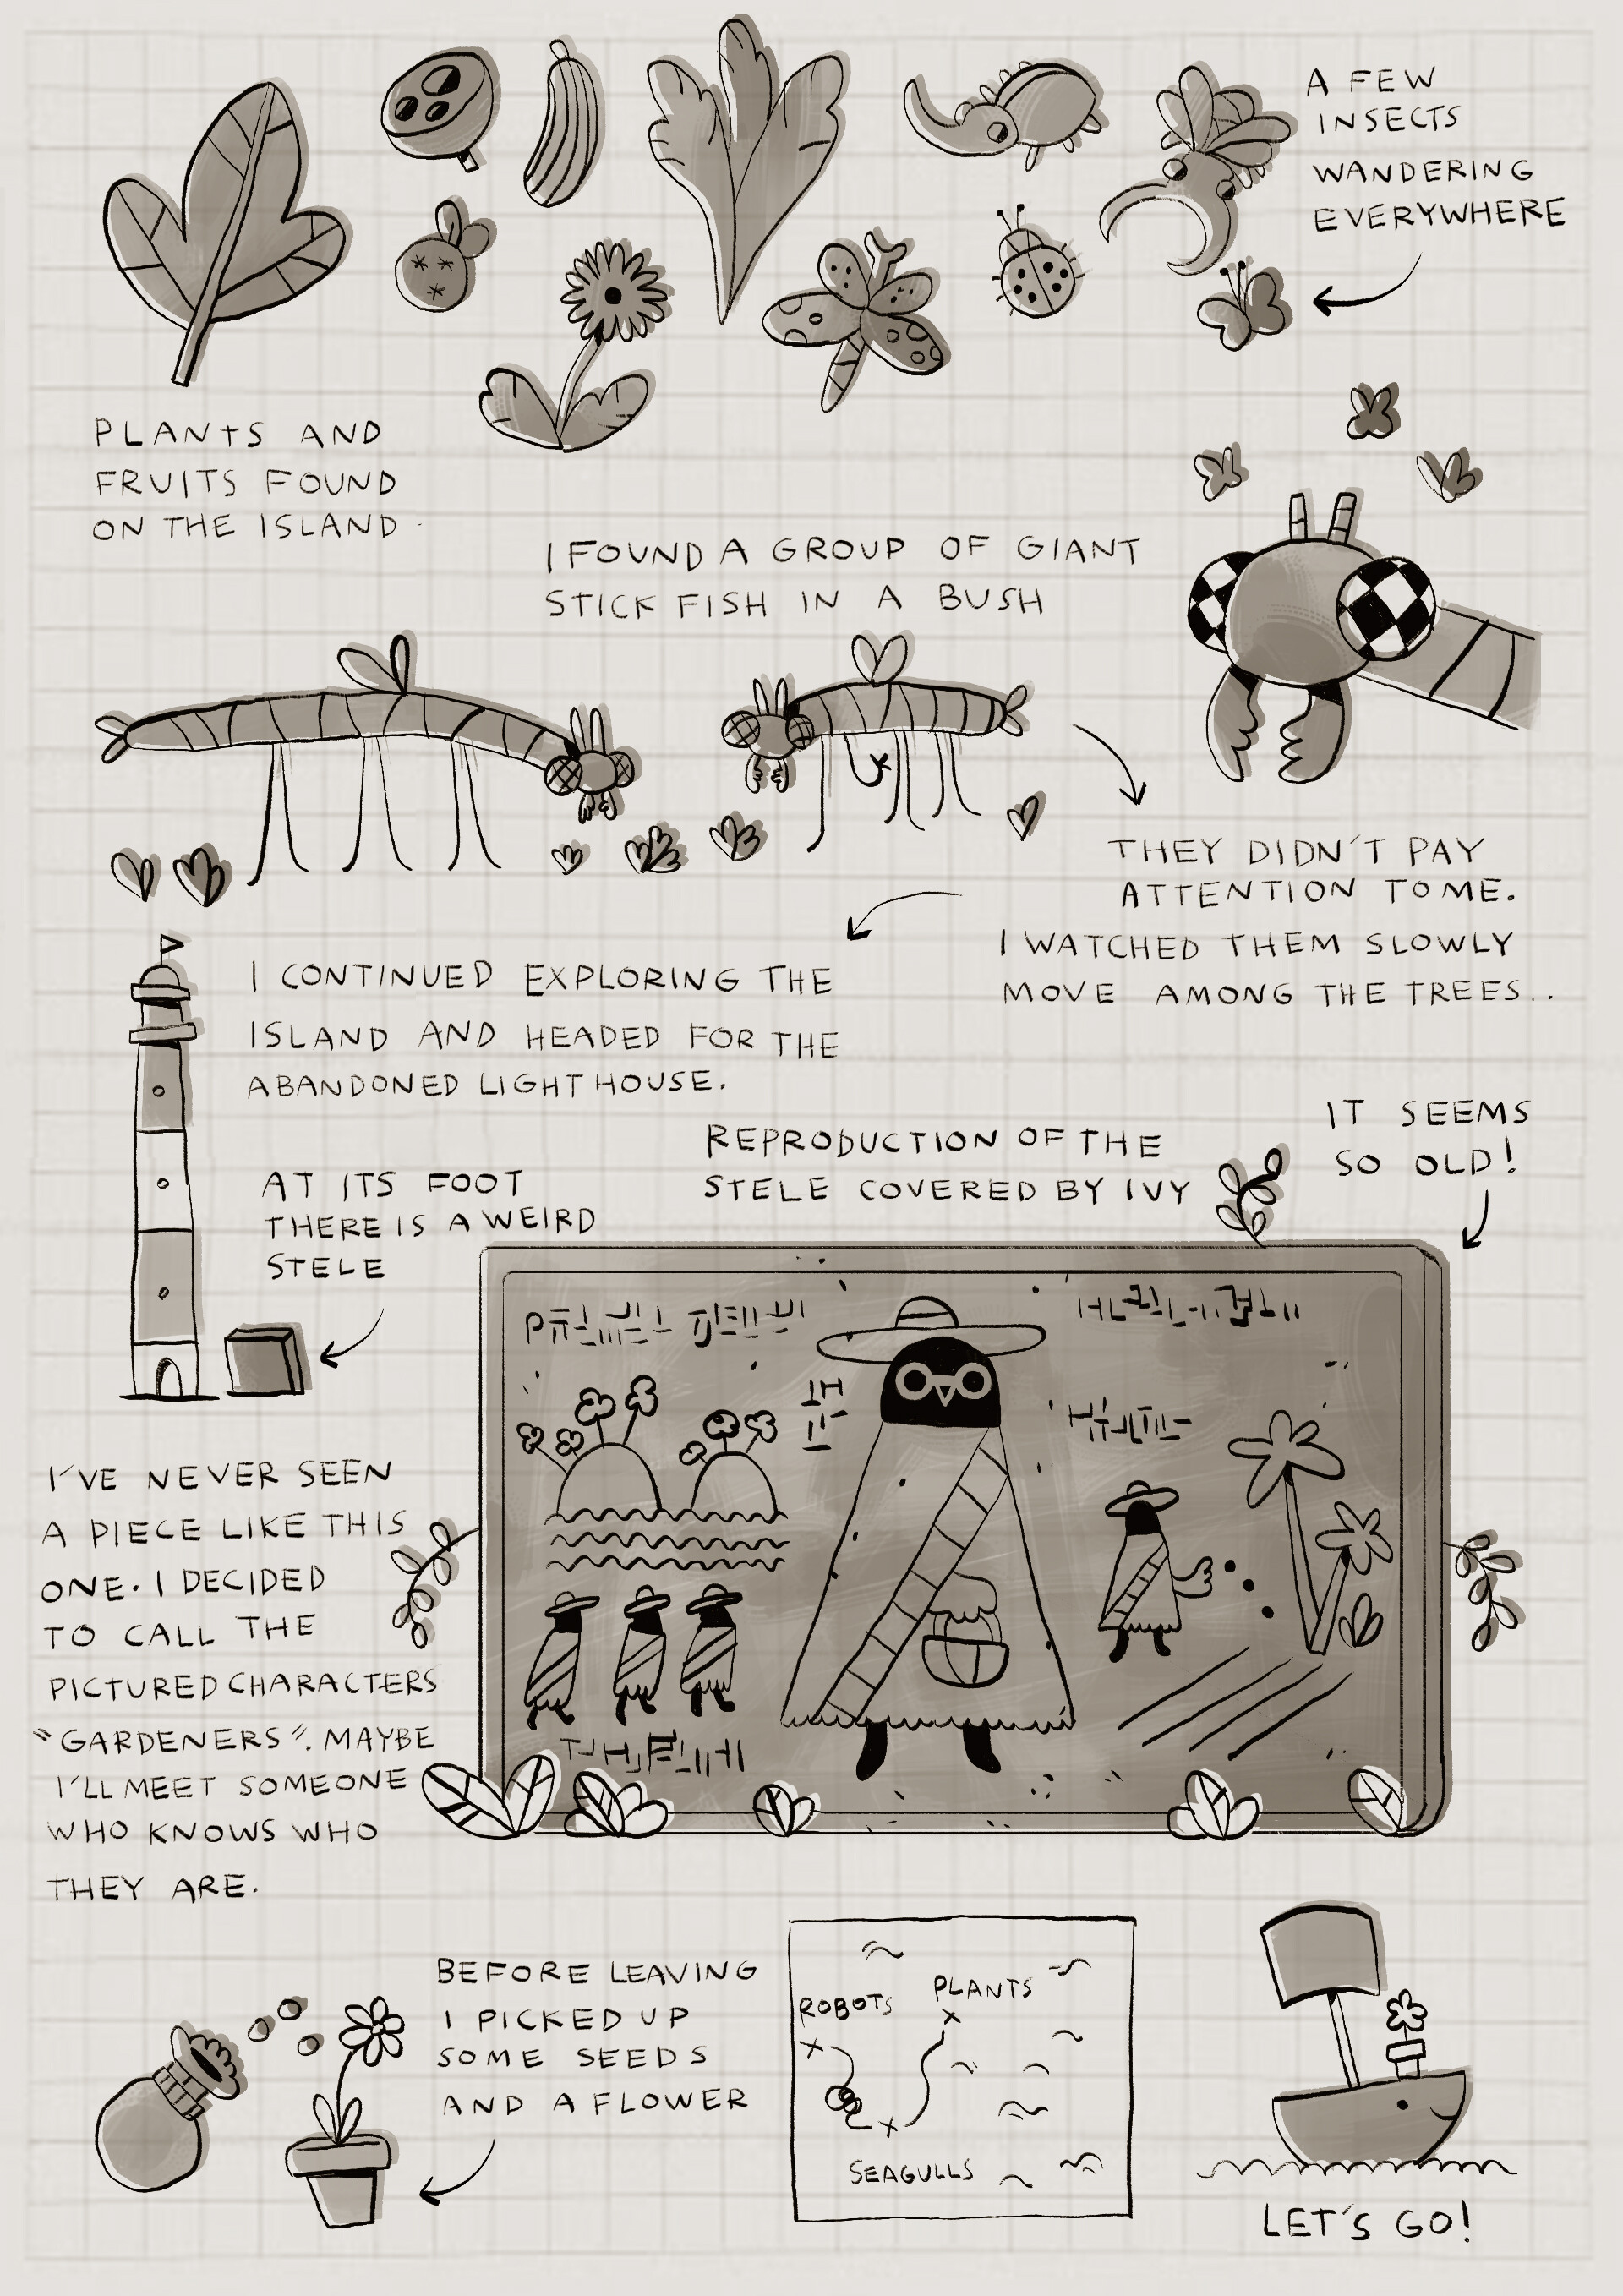 A FEW
INSECTS
WANDERING
EVERYWHERE
PLANTS AND
FRUITS FOUND
ON THE ISLAND
I FOUND A GROUP OF GIANT
STICK FISH IN A BUSH
THEY DIDN'T PAY
ATTENTION TO ME.
I WATCHED THEM SLOWLY
MOVE AMONG THE TREES..
I CONTINUED EXPLORING THE
ISLAND AND HEADED FOR THE
ABANDONED LIGHTHOUSE.
AT ITS FOOT
THERE IS A WEIRD
STELE
REPRODUCTION OF THE
STELE COVERED BY IVY
IT SEEMS
SO OLD!
I'VE NEVER SEEN
A PIECE LIKE THIS
ONE. I DECIDED
TO CALL THE
PICTURED CHARACTERS
"GARDENERS". MAYBE
I'LL MEET SOMEONE
WHO KNOWS WHO
THEY ARE.
BEFORE LEAVING
I PICKED UP
SOME SEEDS
AND A FLOWER
ROBOTS
PLANTS
SEAGULLS
LET'S GO!